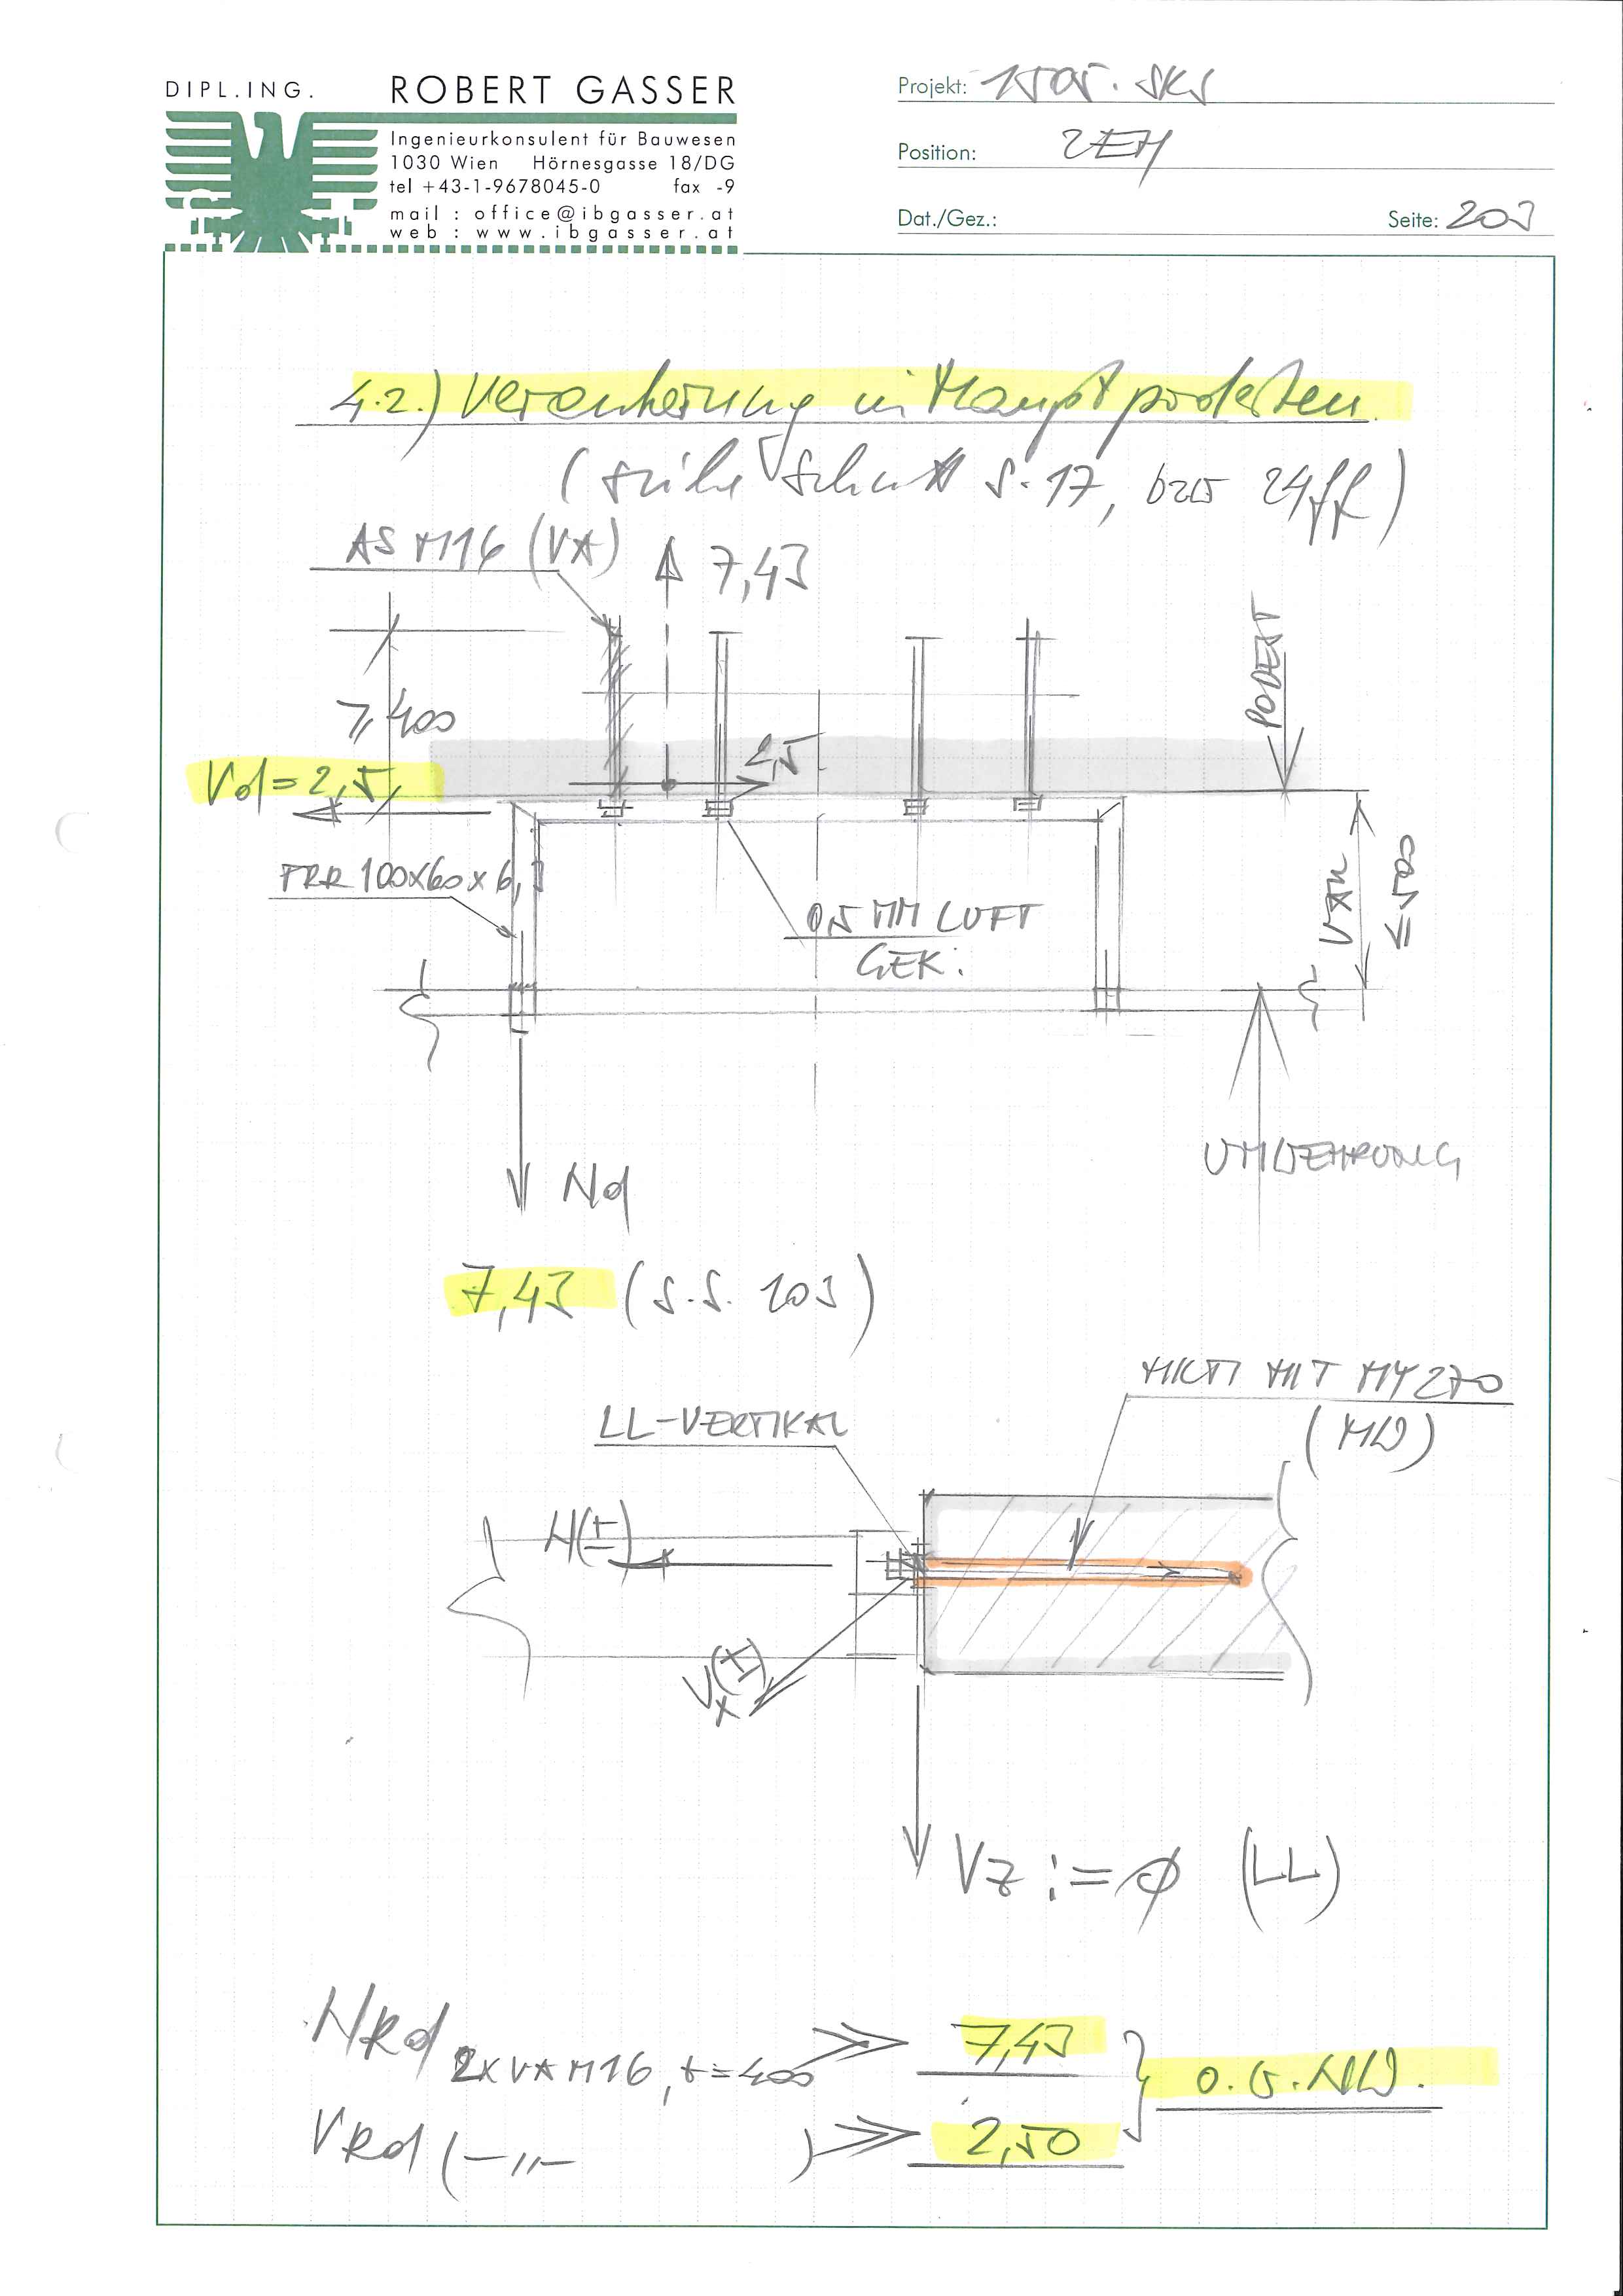 DIPL.ING. ROBERT GASSER
Ingenieurkonsulent für Bauwesen
1030 Wien Hörnesgasse 18/DG
tel +43-1-9678045-0 fax -9
mail : office@ibgasser.at
web : www.ibgasser.at
Projekt: 1505.SKS
Position:
Dat./Gez.:
Seite: 203
4.2.) Verankerung in Hauptpodesten
(siehe Schnitt S. 17, bzw 24ff)
AS M16 (VA) 7,43
PODEST
≥ 400
2,5
Vd = 2,5
FRR 100x60x6,3
VAR ≤ 500
0,5 MM LUFT
GEK.
UMWEHRUNG
Nd
7,43 (s.S. 103)
HILTI MIT HY 270
(MW)
LL-VERTIKAL
N(±)
Vx(±)
Vz := ϕ (LL)
NRd 2x VA M16, t=400 >> 7,43
o.w.NW.
VRd (-"- ) >> 2,50